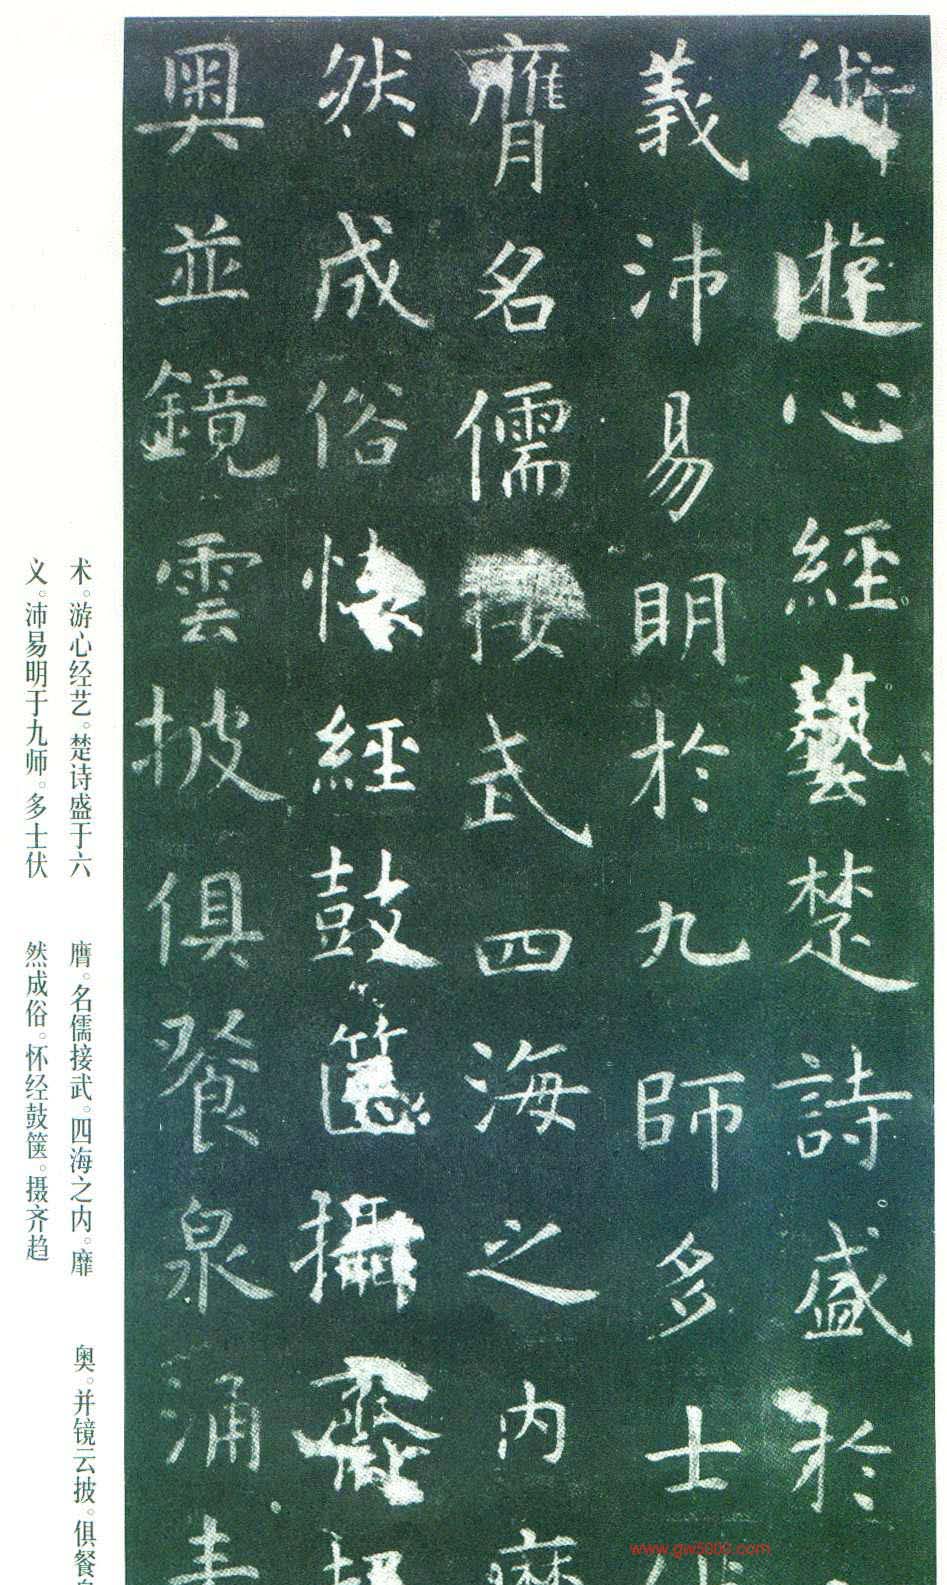 術遊心經藝楚詩盛於
義沛易明於九師多士伏
膺名儒接武四海之内靡
然成俗懷經鼓箧攝齊趋
奥並鏡雲披俱餐泉涌
术。游心经艺。楚诗盛于六
义。沛易明于九师。多士伏
膺。名儒接武。四海之内。靡
然成俗。怀经鼓箧。摄齐趋
奥。并镜云披。俱餐
www.gw5000.com